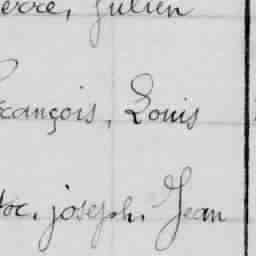 ierre, Julien
François, Louis
toc, joseph, Jean